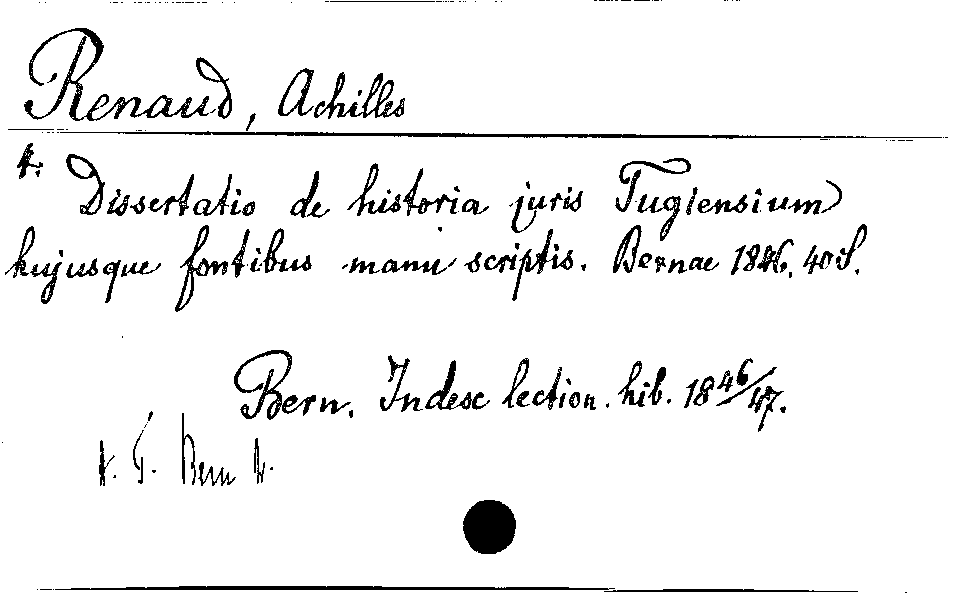 Renaud, Achilles
4. Dissertatio de historia juris Tugiensium
hujusque fontibus manu scriptis. Bernae 1846. 40 S.
Bern. Index lection. hib. 1846/47.
Bern